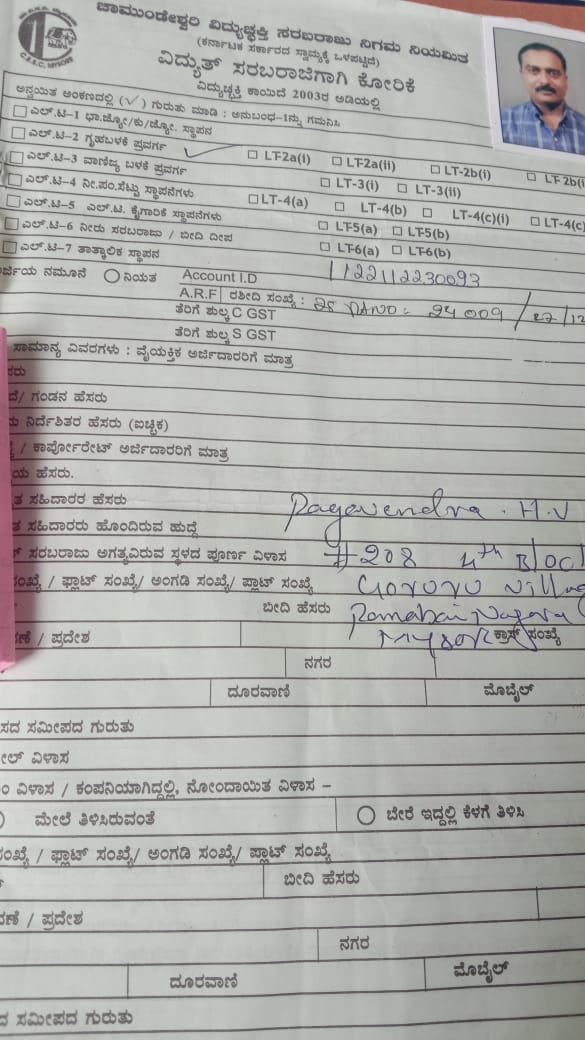 ಚಾಮುಂಡೇಶ್ವರಿ ವಿದ್ಯುಚ್ಛಕ್ತಿ ಸರಬರಾಜು ನಿಗಮ ನಿಯಮಿತ
(ಕರ್ನಾಟಕ ಸರ್ಕಾರದ ಸ್ವಾಮ್ಯಕ್ಕೆ ಒಳಪಟ್ಟಿದೆ)
C.E.S.C, MYSORE
ವಿದ್ಯುತ್ ಸರಬರಾಜಿಗಾಗಿ ಕೋರಿಕೆ
ವಿದ್ಯುಚ್ಛಕ್ತಿ ಕಾಯಿದೆ 2003ರ ಅಡಿಯಲ್ಲಿ
ಅನ್ವಯಿತ ಅಂಕಣದಲ್ಲಿ (✓) ಗುರುತು ಮಾಡಿ : ಅನುಬಂಧ-1ನ್ನು ಗಮನಿಸಿ
ಎಲ್.ಟಿ-1 ಭಾ.ಜ್ಯೋ/ಕು/ಜ್ಯೋ. ಸ್ಥಾಪನ
ಎಲ್.ಟಿ-2 ಗೃಹಬಳಕೆ ಪ್ರವರ್ಗ ✓ LT-2a(i) LT-2a(ii) LT-2b(i) LT-2b(i
ಎಲ್.ಟಿ-3 ವಾಣಿಜ್ಯ ಬಳಕೆ ಪ್ರವರ್ಗ LT-3(i) LT-3(ii)
ಎಲ್.ಟಿ-4 ನೀ.ಪಂ.ಸೆಟ್ಟು ಸ್ಥಾಪನೆಗಳು LT-4(a) LT-4(b) LT-4(c)(i) LT-4(c)
ಎಲ್.ಟಿ-5 ಎಲ್.ಟಿ. ಕೈಗಾರಿಕೆ ಸ್ಥಾಪನೆಗಳು LT-5(a) LT-5(b)
ಎಲ್.ಟಿ-6 ನೀರು ಸರಬರಾಜು / ಬೀದಿ ದೀಪ LT-6(a) LT-6(b)
ಎಲ್.ಟಿ-7 ತಾತ್ಕಾಲಿಕ ಸ್ಥಾಪನ
ರ್ಜಿಯ ನಮೂನೆ ನಿಯತ Account I.D
A.R.F ರಶೀದಿ ಸಂಖ್ಯೆ :
ತೆರಿಗೆ ಶುಲ್ಕ C GST
ತೆರಿಗೆ ಶುಲ್ಕ S GST
ಸಾಮಾನ್ಯ ವಿವರಗಳು : ವೈಯಕ್ತಿಕ ಅರ್ಜಿದಾರರಿಗೆ ಮಾತ್ರ
ಸರು
ದೆ/ ಗಂಡನ ಹೆಸರು
ನಿರ್ದೆಶಿತರ ಹೆಸರು (ಐಚ್ಛಿಕ)
/ ಕಾರ್ಪೋರೇಟ್ ಅರ್ಜಿದಾರರಿಗೆ ಮಾತ್ರ
ಯ ಹೆಸರು.
ತ ಸಹಿದಾರರ ಹೆಸರು Ragavendra . H.V
ತ ಸಹಿದಾರರು ಹೊಂದಿರುವ ಹುದ್ದೆ
ಸರಬರಾಜು ಅಗತ್ಯವಿರುವ ಸ್ಥಳದ ಪೂರ್ಣ ವಿಳಾಸ #208 4th Bloc
ಸಂಖ್ಯೆ / ಫ್ಲಾಟ್ ಸಂಖ್ಯೆ/ ಅಂಗಡಿ ಸಂಖ್ಯೆ/ ಪ್ಲಾಟ್ ಸಂಖ್ಯೆ
ಬೀದಿ ಹೆಸರು Ramabai Nagara
ವಣೆ / ಪ್ರದೇಶ Mysore ಕ್ರಾಸ್ ಸಂಖ್ಯೆ
ನಗರ
ದೂರವಾಣಿ ಮೊಬೈಲ್
ಸದ ಸಮೀಪದ ಗುರುತು
ಲ್ ವಿಳಾಸ
ವಿಳಾಸ / ಕಂಪನಿಯಾಗಿದ್ದಲ್ಲಿ, ನೋಂದಾಯಿತ ವಿಳಾಸ –
ಮೇಲೆ ತಿಳಿಸಿರುವಂತೆ ಬೇರೆ ಇದ್ದಲ್ಲಿ ಕೆಳಗೆ ತಿಳಿಸಿ
ಸಂಖ್ಯೆ / ಫ್ಲಾಟ್ ಸಂಖ್ಯೆ/ ಅಂಗಡಿ ಸಂಖ್ಯೆ/ ಪ್ಲಾಟ್ ಸಂಖ್ಯೆ
ಬೀದಿ ಹೆಸರು
ವಣೆ / ಪ್ರದೇಶ
ನಗರ
ದೂರವಾಣಿ ಮೊಬೈಲ್
ದ ಸಮೀಪದ ಗುರುತು